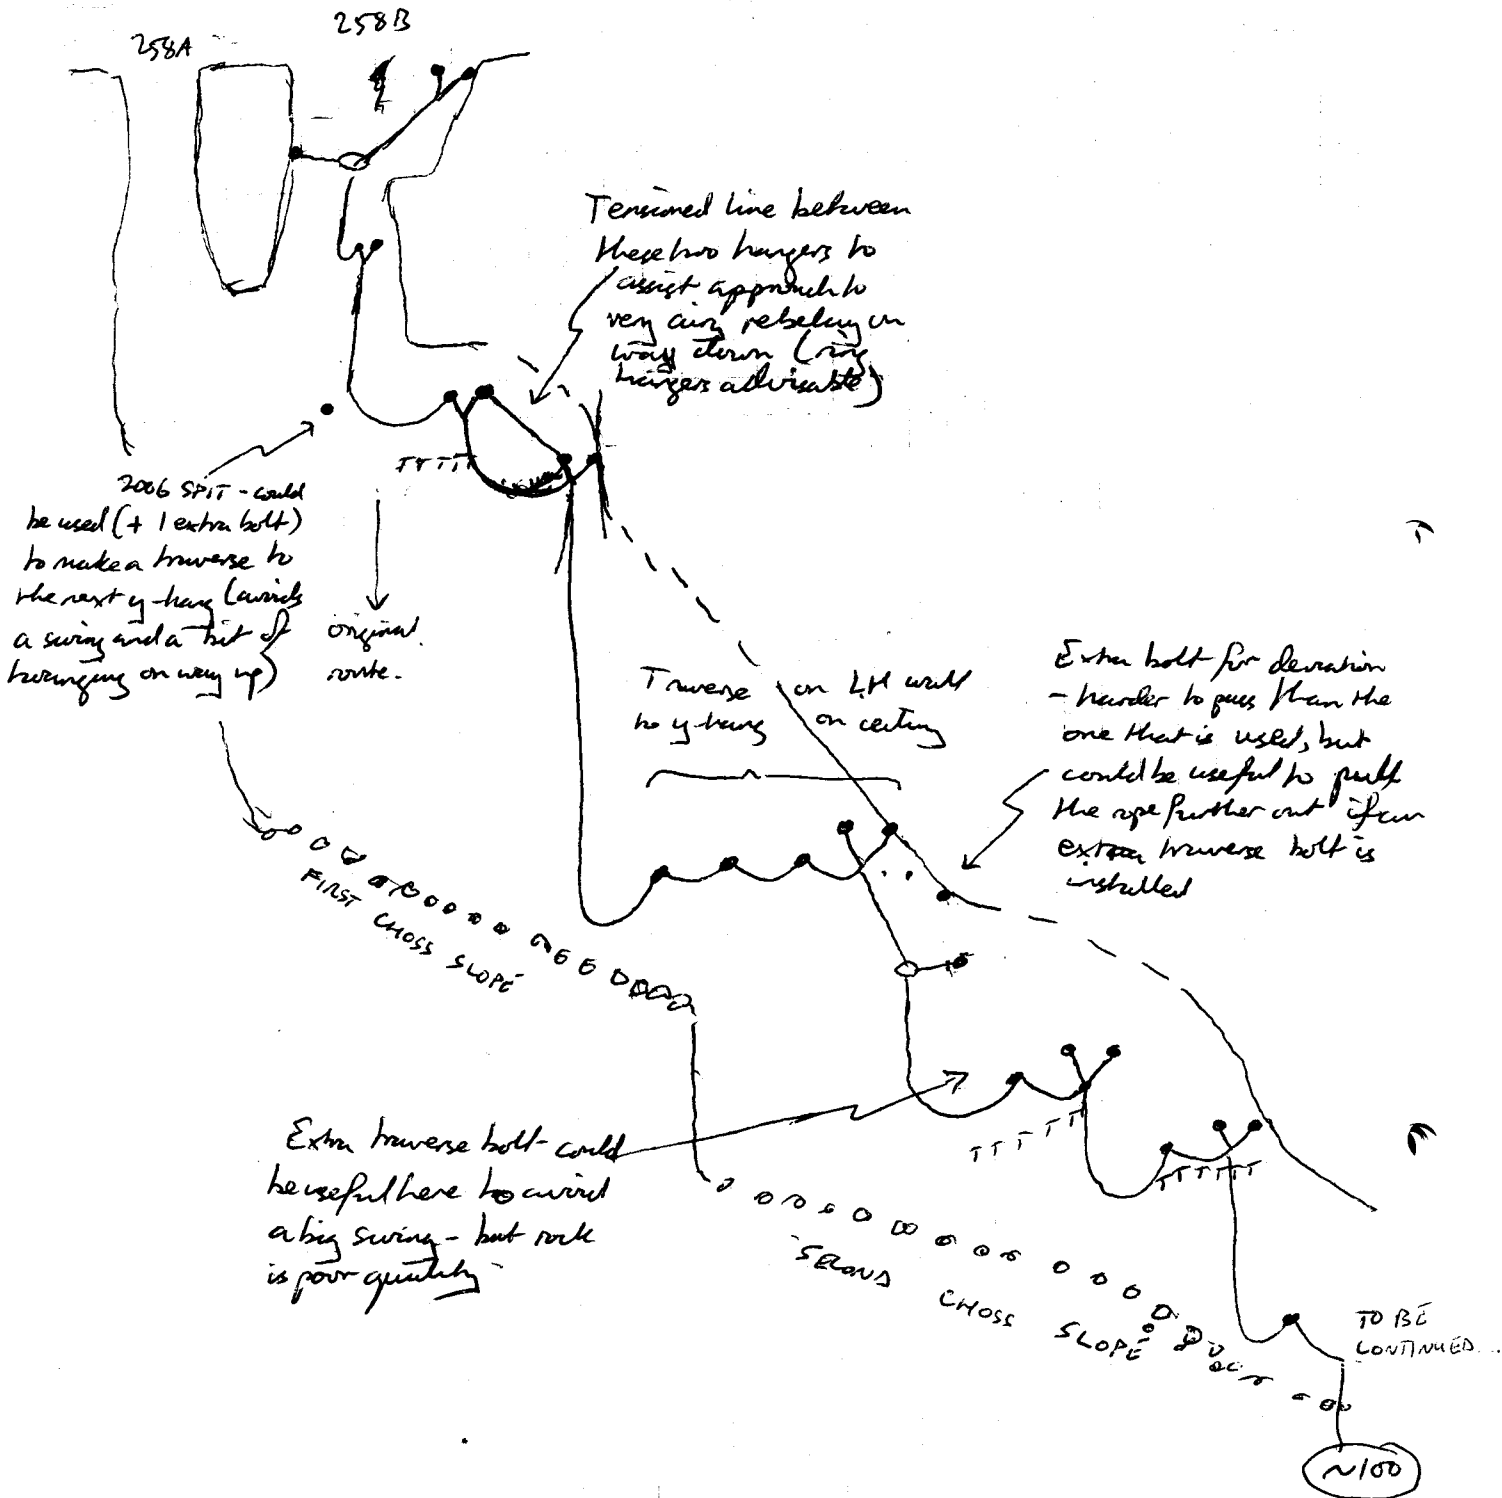 258A
258B
Tensioned line between
these two hangers to
assist approach to
very airy rebelay on
way down (ring
hangers advisable)
2006 SPIT - could
be used (+ 1 extra bolt)
to make a traverse to
the next y-hang (avoids
a swing and a bit of
twanging on way up)
original
route.
Traverse on LH wall
to y-hang on ceiling
Extra bolt for deviation
- harder to pass than the
one that is used, but
could be useful to pull
the rope further out if an
extra traverse bolt is
installed
FIRST CHOSS SLOPE
Extra traverse bolt could
be useful here to avoid
a big swing - but rock
is poor quality
SECOND CHOSS SLOPE
TO BE
CONTINUED...
~100